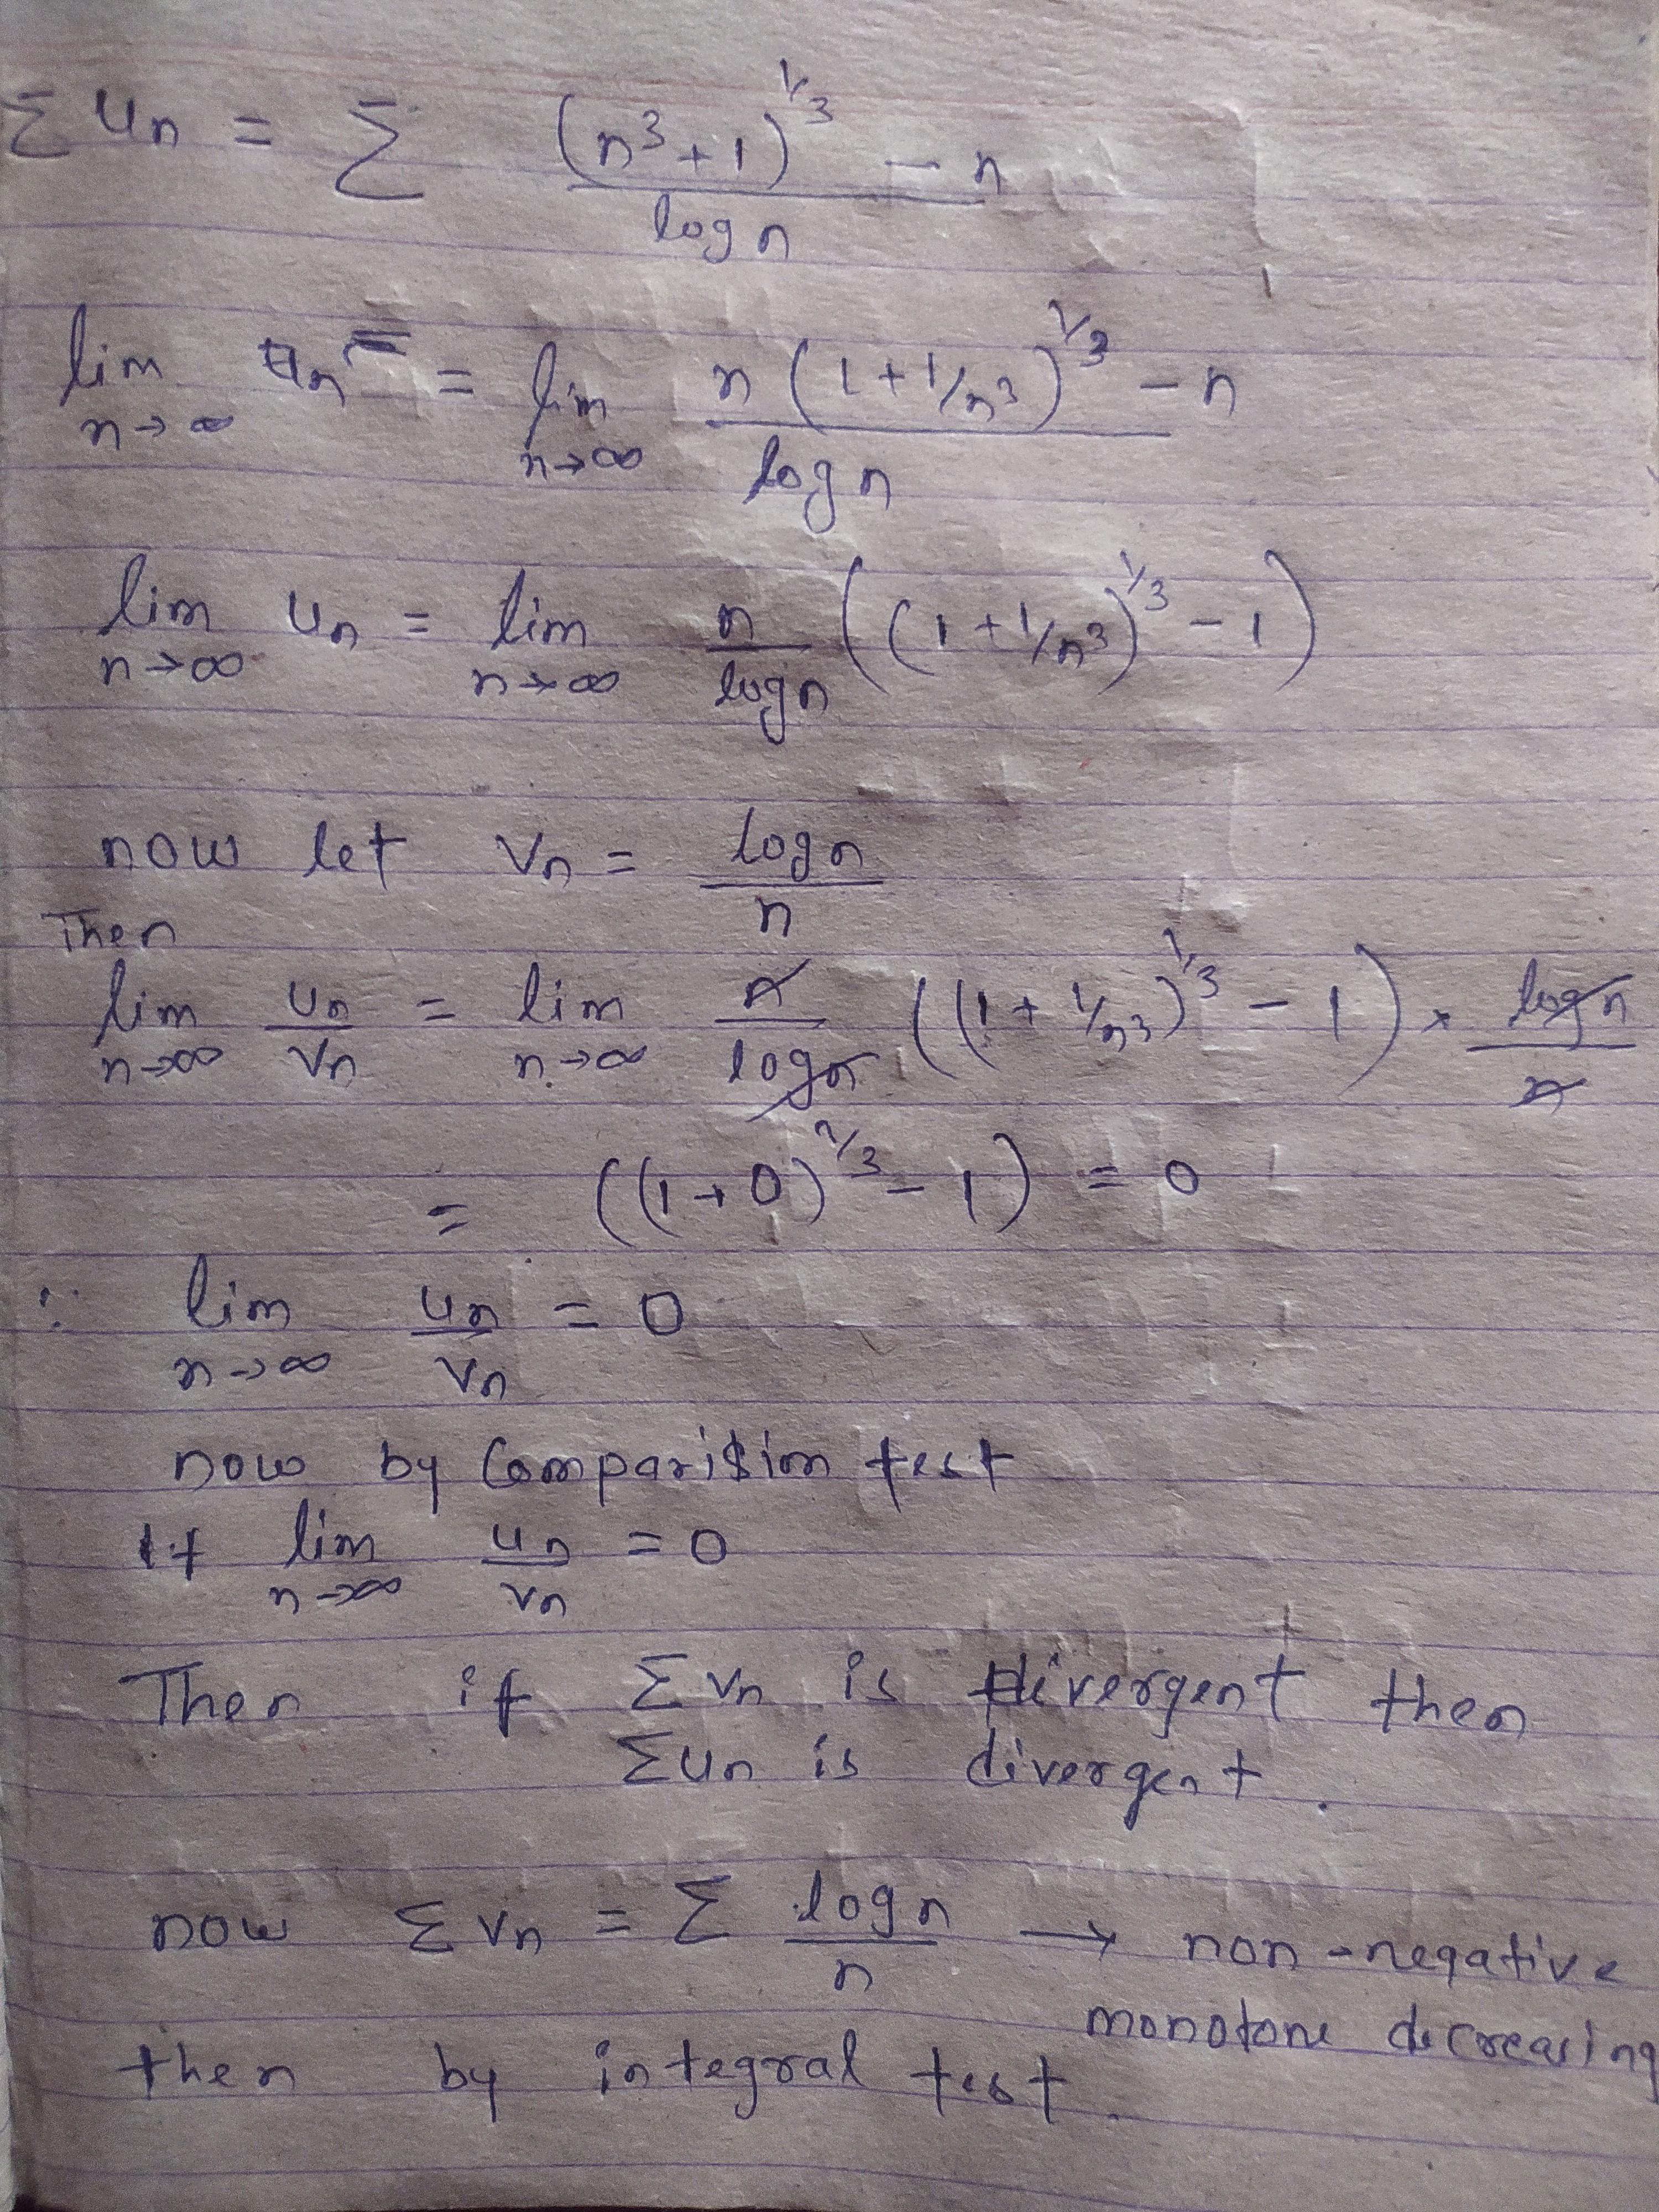 Σ un = Σ (n³+1)^1/3 - n / log n
lim n→∞ un = lim n→∞ n(1+1/n³)^1/3 - n / log n
lim n→∞ un = lim n→∞ n/log n ((1+1/n³)^1/3 - 1)
now let vn = log n / n
Then
lim n→∞ un/vn = lim n→∞ n/log n ((1+1/n³)^1/3 - 1) × log n / n
= ((1+0)^1/3 - 1) = 0
∴ lim n→∞ un/vn = 0
now by Comparision test
If lim n→∞ un/vn = 0
Then if Σ vn is divergent then
Σ un is divergent.
now Σ vn = Σ log n / n → non-negative
monotone decreasing
then by integral test.